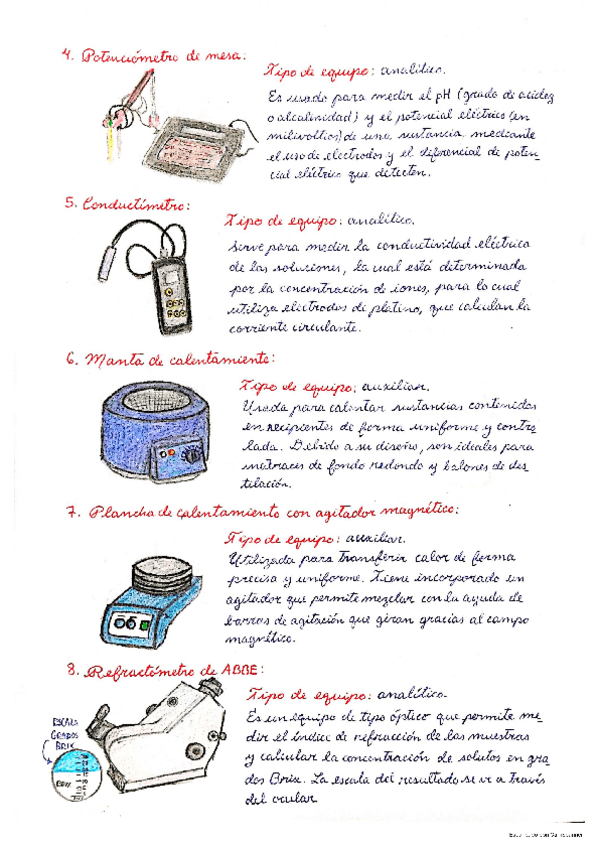 4. Potenciómetro de mesa:
Tipo de equipo: analítico.
Es usado para medir el pH (grado de acidez
o alcalinidad) y el potencial eléctrico (en
milivoltios) de una sustancia mediante
el uso de electrodos y el diferencial de poten-
cial eléctrico que detecten.
5. Conductímetro:
Tipo de equipo: analítico.
Sirve para medir la conductividad eléctrica
de las soluciones, la cual está determinada
por la concentración de iones, para lo cual
utiliza electrodos de platino, que calculan la
corriente circulante.
6. Manta de calentamiento:
Tipo de equipo: auxiliar.
Usada para calentar sustancias contenidas
en recipientes de forma uniforme y contro
lada. Debido a su diseño, son ideales para
matraces de fondo redondo y balones de des
tilación.
7. Plancha de calentamiento con agitador magnético:
Tipo de equipo: auxiliar.
Utilizada para transferir calor de forma
precisa y uniforme. Tiene incorporado un
agitador que permite mezclar con la ayuda de
barras de agitación que giran gracias al campo
magnético.
8. Refractómetro de ABBE:
Tipo de equipo: analítico.
Es un equipo de tipo óptico que permite me
dir el índice de refracción de las muestras
y calcular la concentración de solutos en gra
dos Brix. La escala del resultado se ve a través
del ocular
ESCALA
GRADOS
BRIX